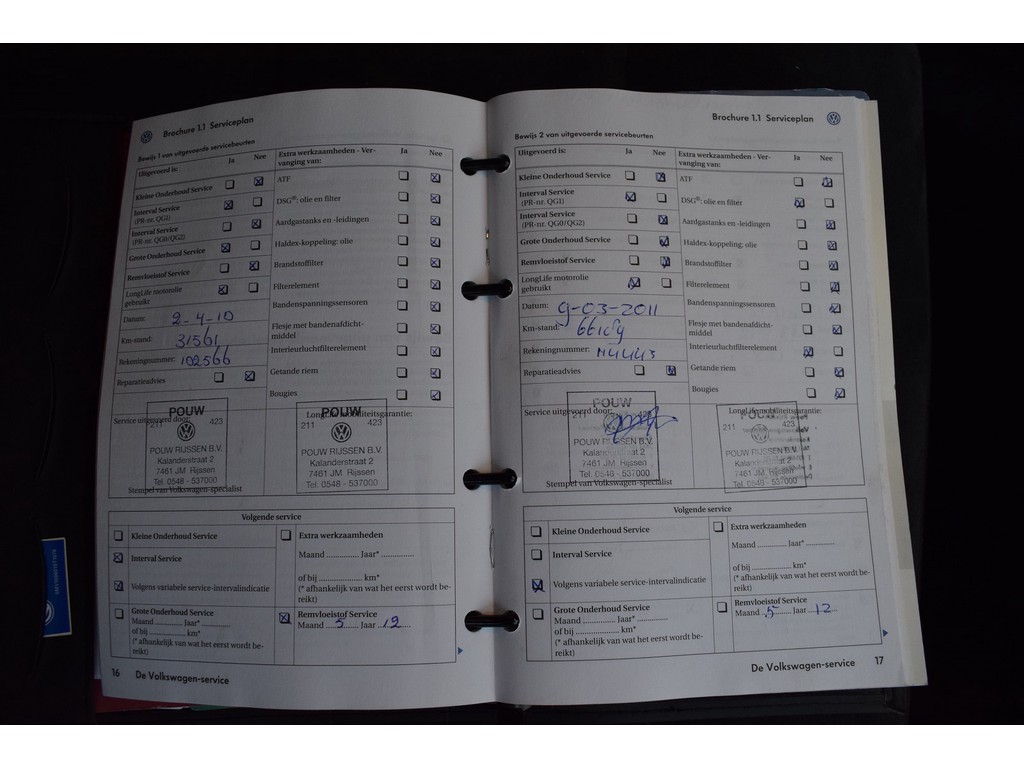 Brochure 1.1 Serviceplan
Bewijs 1 van uitgevoerde servicebeurten
Uitgevoerd is: Ja Nee
Kleine Onderhoud Service
Interval Service
(PR-nr. QG1)
Interval Service
(PR-nr. QG0/QG2)
Grote Onderhoud Service
Remvloeistof Service
LongLife motorolie
gebruikt
Datum: 2-4-10
Km-stand: 31561
Rekeningnummer: 102566
Reparatieadvies
Extra werkzaamheden - Ver-
vanging van: Ja Nee
ATF
DSG®: olie en filter
Aardgastanks en -leidingen
Haldex-koppeling: olie
Brandstoffilter
Filterelement
Bandenspanningssensoren
Flesje met bandenafdicht-
middel
Interieurluchtfilterelement
Getande riem
Bougies
Service uitgevoerd door:
POUW
211 423
POUW RIJSSEN B.V.
Kalanderstraat 2
7461 JM Rijssen
Tel. 0548 - 537000
Stempel van Volkswagen-specialist
LongLife mobiliteitsgarantie:
POUW
211 423
POUW RIJSSEN B.V.
Kalanderstraat 2
7461 JM Rijssen
Tel. 0548 - 537000
Volgende service
Kleine Onderhoud Service
Interval Service
Volgens variabele service-intervalindicatie
Grote Onderhoud Service
Maand ............ Jaar* ............
of bij .................... km*
(* afhankelijk van wat het eerst wordt be-
reikt)
Extra werkzaamheden
Maand ............ Jaar* ............
of bij .................... km*
(* afhankelijk van wat het eerst wordt be-
reikt)
Remvloeistof Service
Maand 5 Jaar 12
16 De Volkswagen-service
Brochure 1.1 Serviceplan
Bewijs 2 van uitgevoerde servicebeurten
Uitgevoerd is: Ja Nee
Kleine Onderhoud Service
Interval Service
(PR-nr. QG1)
Interval Service
(PR-nr. QG0/QG2)
Grote Onderhoud Service
Remvloeistof Service
LongLife motorolie
gebruikt
Datum: 9-03-2011
Km-stand:
Rekeningnummer: 114443
Reparatieadvies
Extra werkzaamheden - Ver-
vanging van: Ja Nee
ATF
DSG®: olie en filter
Aardgastanks en -leidingen
Haldex-koppeling: olie
Brandstoffilter
Filterelement
Bandenspanningssensoren
Flesje met bandenafdicht-
middel
Interieurluchtfilterelement
Getande riem
Bougies
Service uitgevoerd door:
POUW
211 423
POUW RIJSSEN B.V.
Kalanderstraat 2
7461 JM Rijssen
Tel. 0548 - 537000
Stempel van Volkswagen-specialist
LongLife mobiliteitsgarantie:
POUW
211 423
POUW RIJSSEN B.V.
Kalanderstraat 2
7461 JM Rijssen
Tel. 0548 - 537000
Volgende service
Kleine Onderhoud Service
Interval Service
Volgens variabele service-intervalindicatie
Grote Onderhoud Service
Maand ............ Jaar* ............
of bij .................... km*
(* afhankelijk van wat het eerst wordt be-
reikt)
Extra werkzaamheden
Maand ............ Jaar* ............
of bij .................... km*
(* afhankelijk van wat het eerst wordt be-
reikt)
Remvloeistof Service
Maand 5 Jaar 12
De Volkswagen-service 17